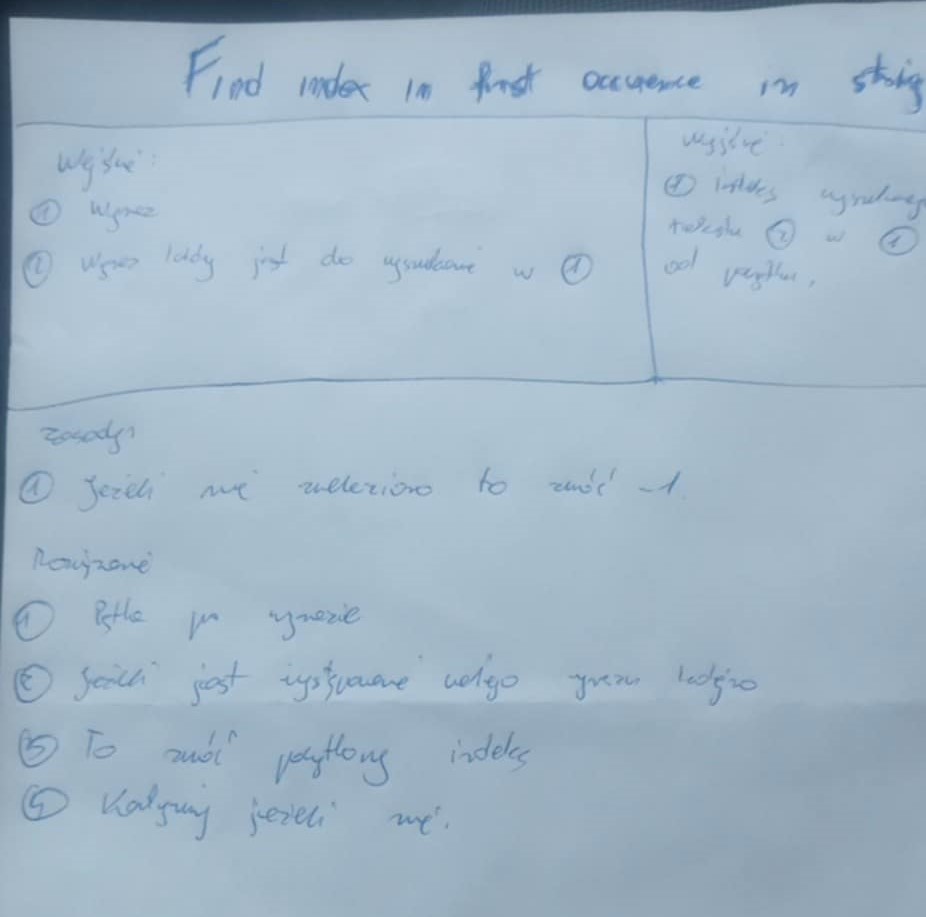 Find index in first occurence in string
Wejście:
① Wyraz
② Wyraz który jest do wyszukania w ①
Wyjście:
① indeks
tekstu ② w ①
od początku.
Zasady:
① Jeżeli nie znaleziono to zwróć -1.
Rozwiązanie
① Pętla po wyrazie
② Jeżeli jest występowanie całego wyrazu
③ To zwróć początkowy indeks
④ Kontynuuj jeżeli nie.